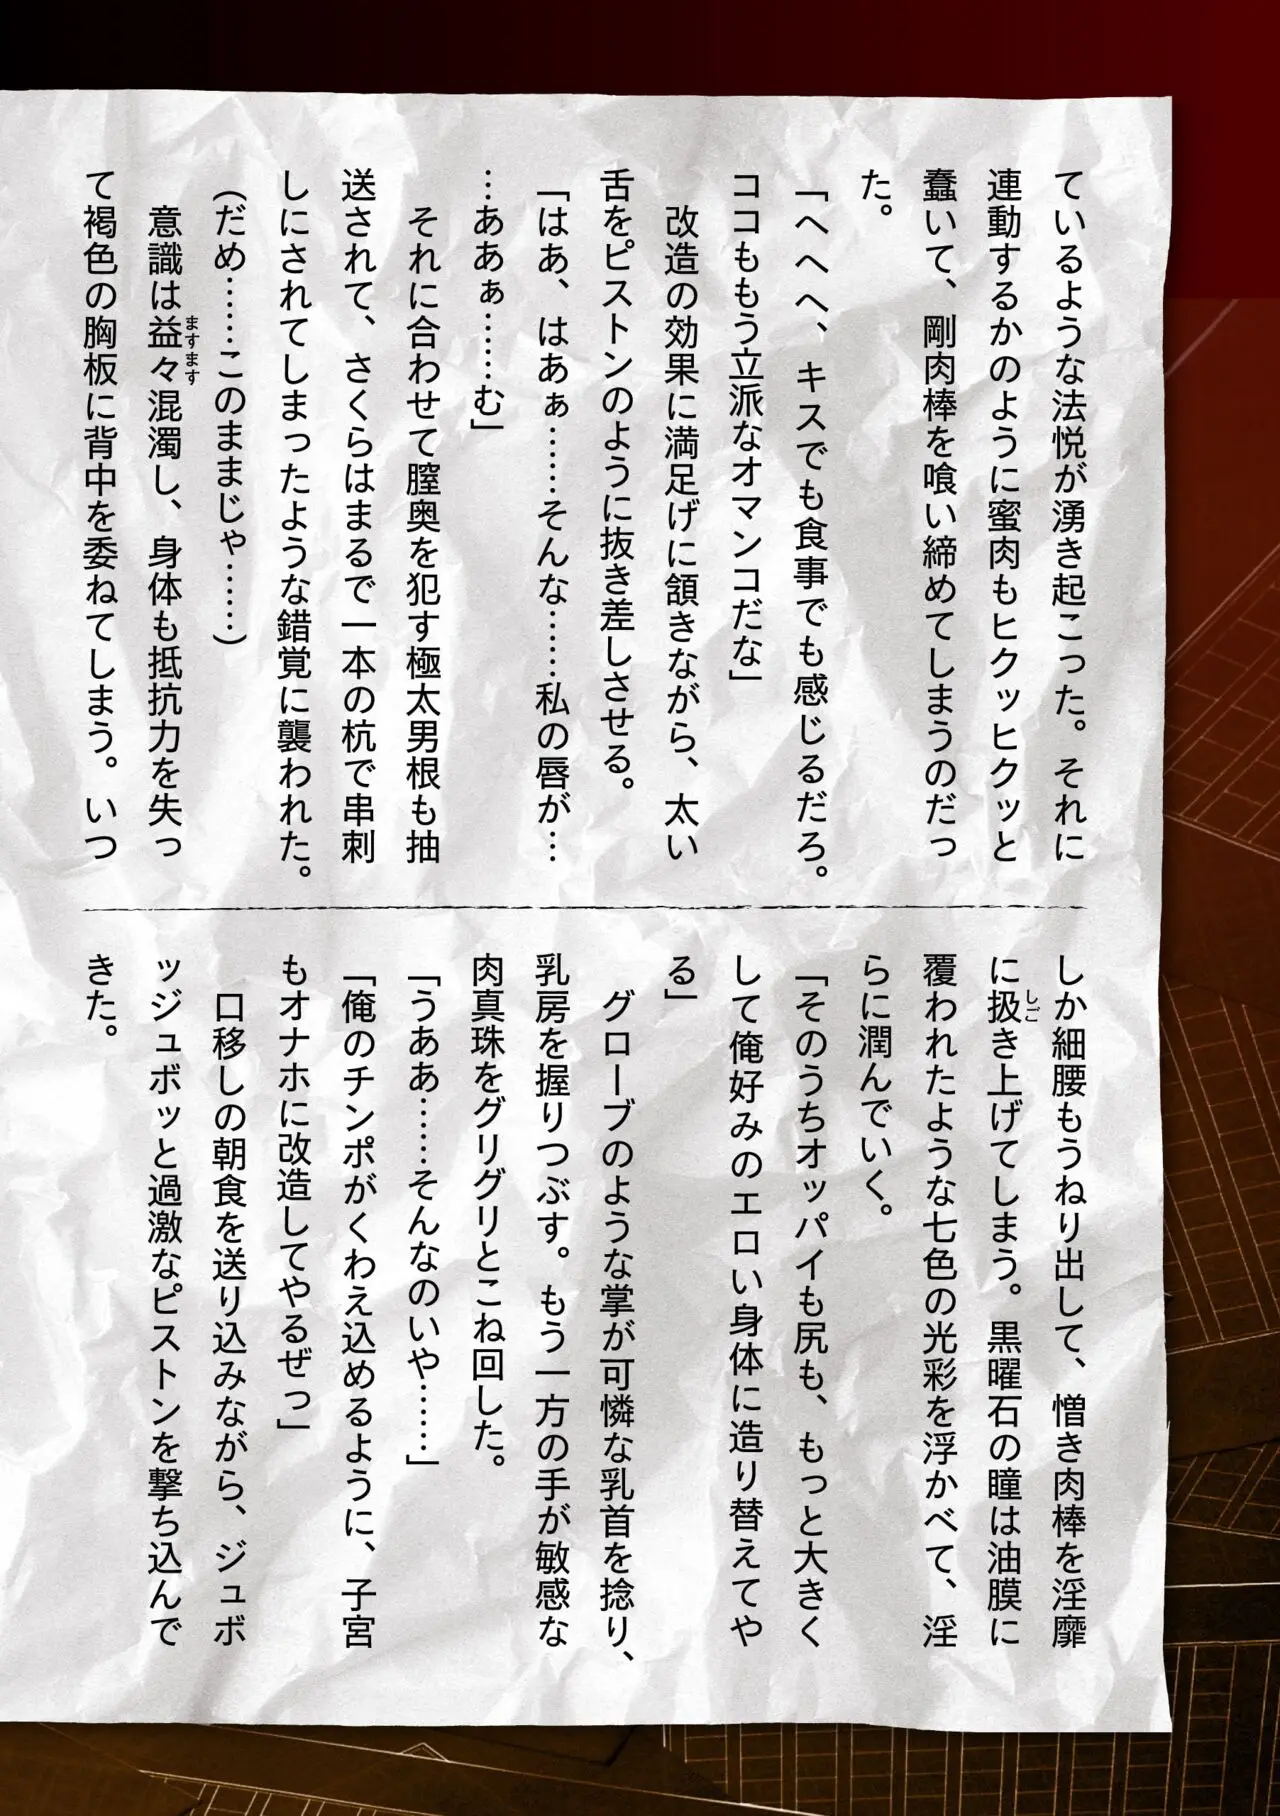 ているような法悦が湧き起こった。それに
連動するかのように蜜肉もヒクッヒクッと
蠢いて、剛肉棒を喰い締めてしまうのだっ
た。
「へへへ、キスでも食事でも感じるだろ。
ココももう立派なオマンコだな」
改造の効果に満足げに頷きながら、太い
舌をピストンのように抜き差しさせる。
「はあ、はあぁ……そんな……私の唇が…
…ああぁ……む」
それに合わせて膣奥を犯す極太男根も抽
送されて、さくらはまるで一本の杭で串刺
しにされてしまったような錯覚に襲われた。
(だめ……このままじゃ……)
意識は益々ますます混濁し、身体も抵抗力を失っ
て褐色の胸板に背中を委ねてしまう。いつ
しか細腰もうねり出して、憎き肉棒を淫靡
に扱しごき上げてしまう。黒曜石の瞳は油膜に
覆われたような七色の光彩を浮かべて、淫
らに潤んでいく。
「そのうちオッパイも尻も、もっと大きく
して俺好みのエロい身体に造り替えてや
る」
グローブのような掌が可憐な乳首を捻り、
乳房を握りつぶす。もう一方の手が敏感な
肉真珠をグリグリとこね回した。
「うああ……そんなのいや……」
「俺のチンポがくわえ込めるように、子宮
もオナホに改造してやるぜっ」
口移しの朝食を送り込みながら、ジュボ
ッジュボッと過激なピストンを撃ち込んで
きた。